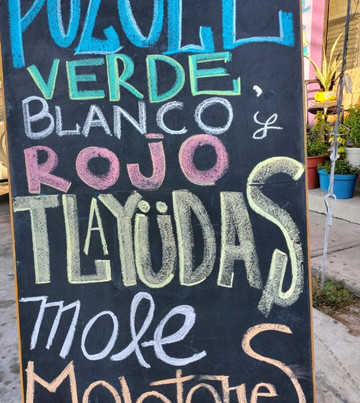 POZOLE
VERDE,
BLANCO y
ROJO
TLAYÜDAS
mole
MOLOTES